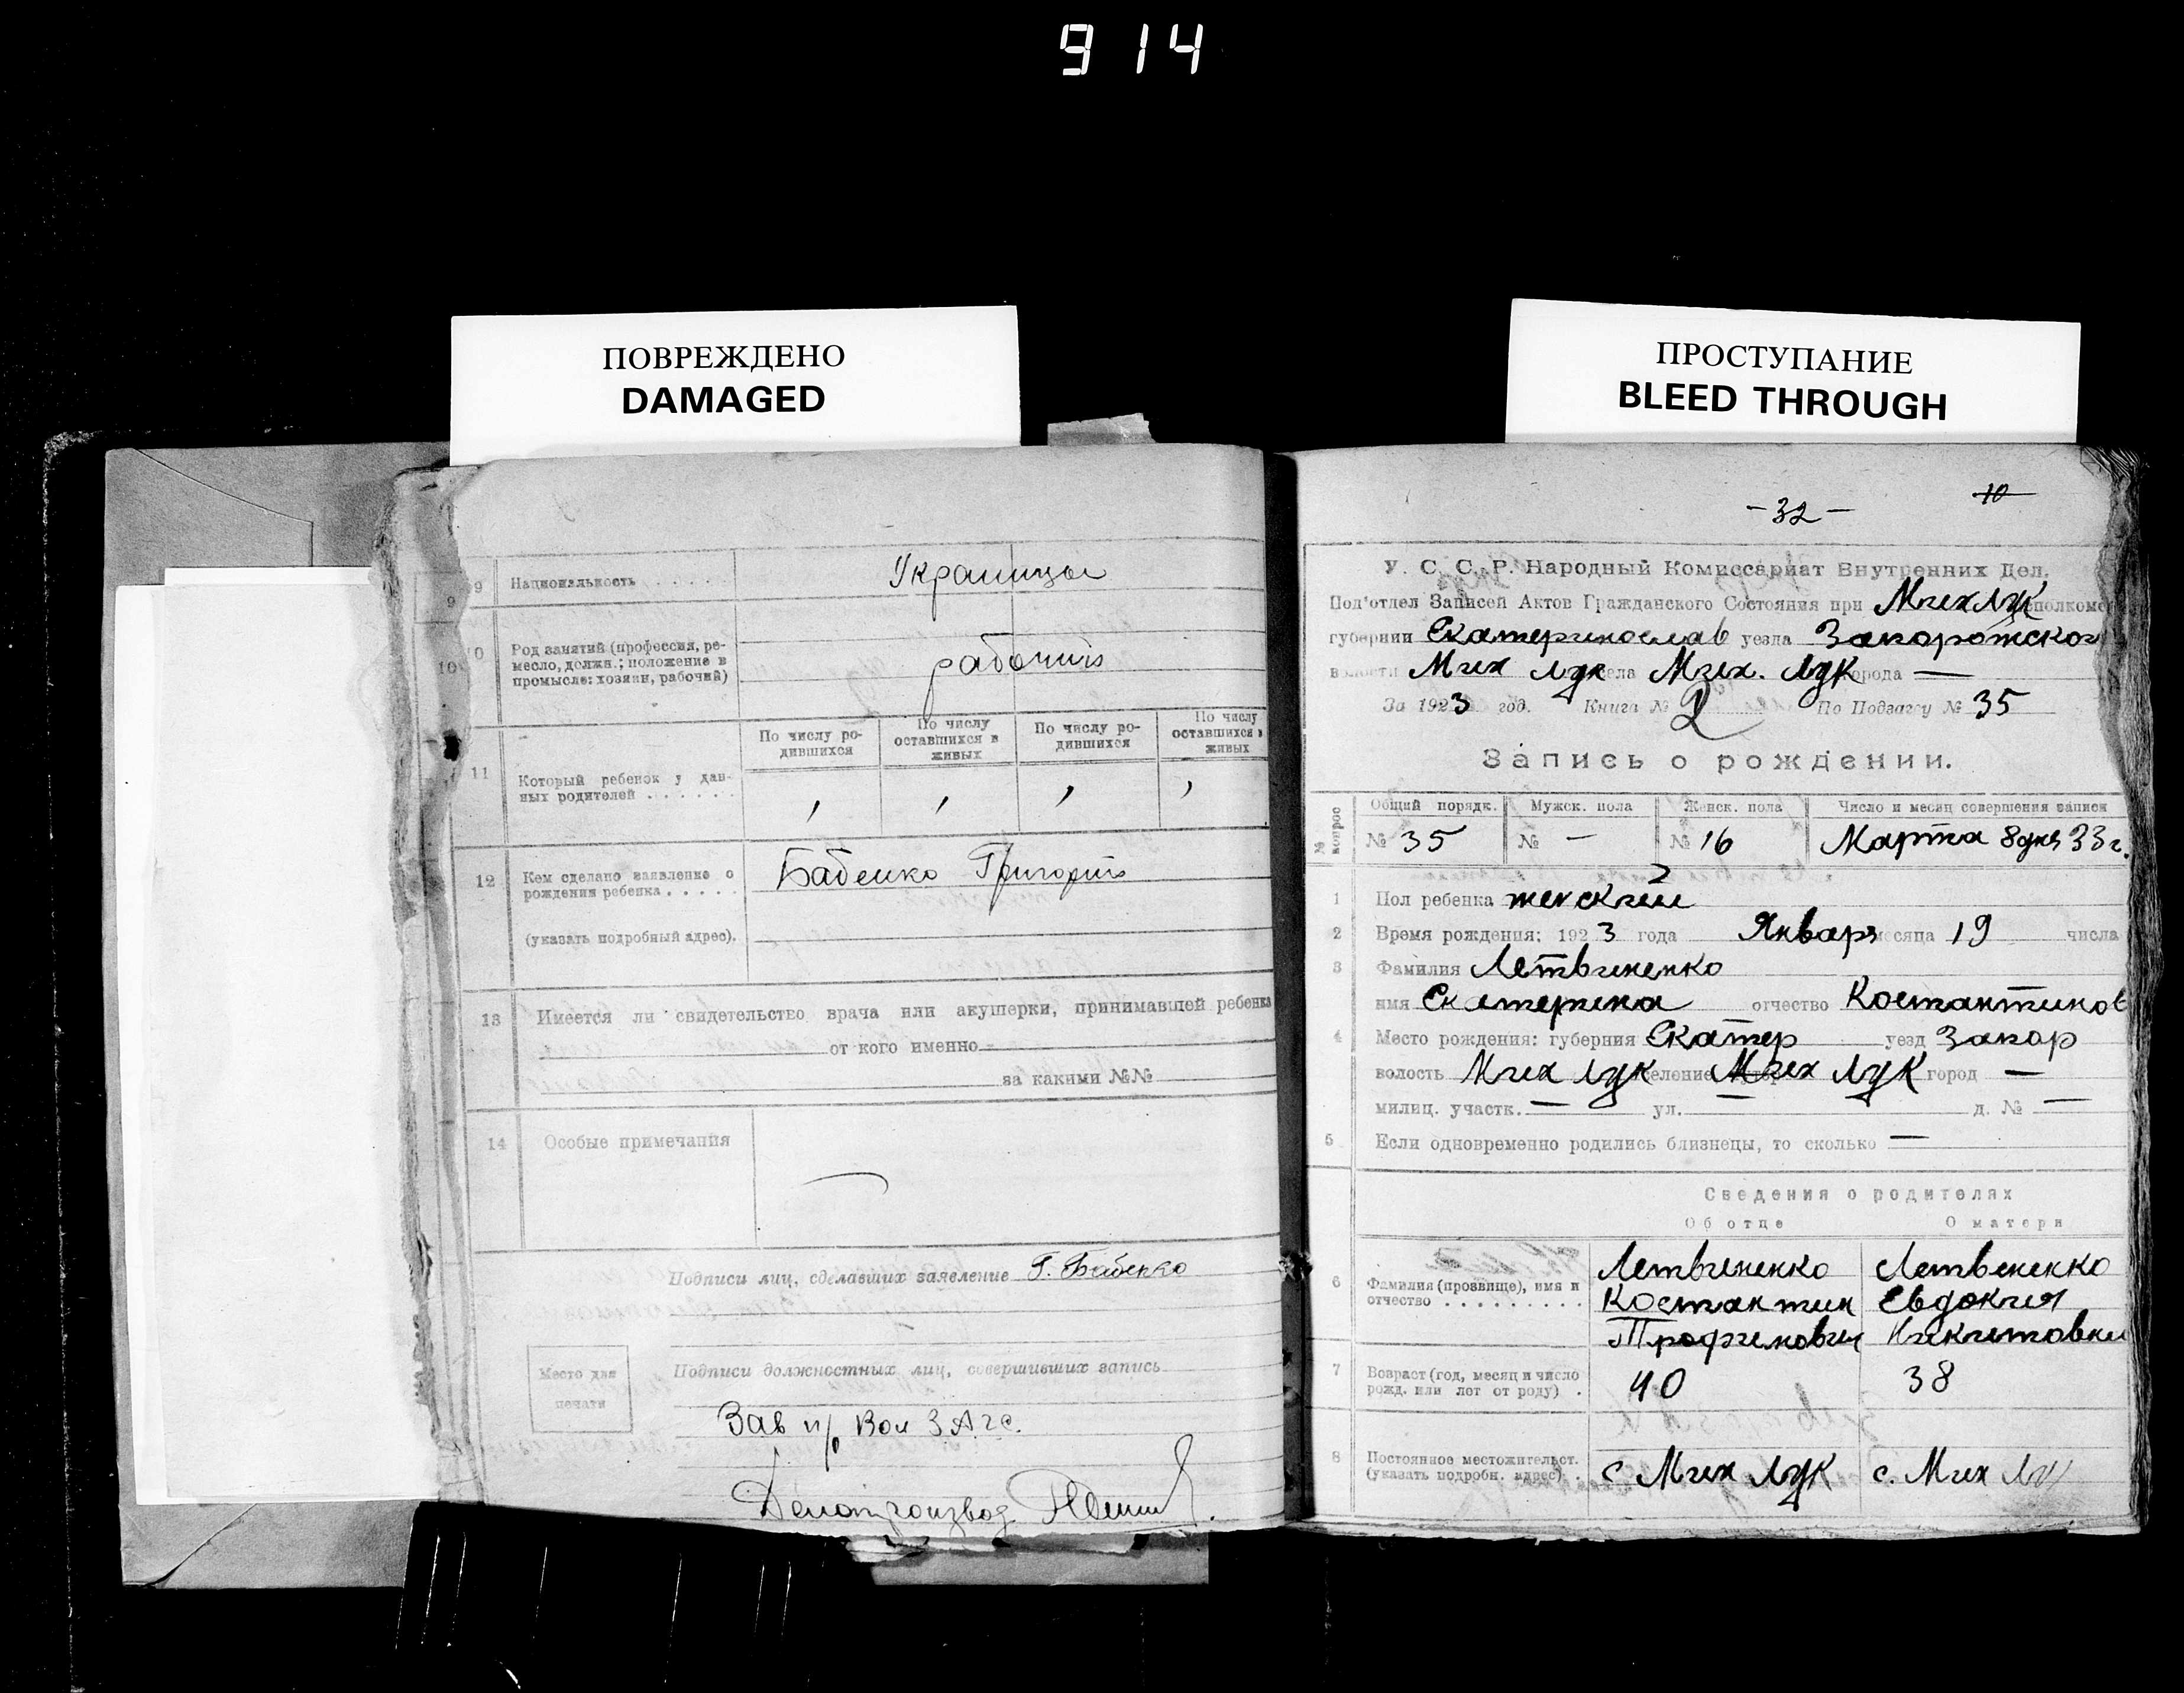 914
ПОВРЕЖДЕНО
DAMAGED
ПРОСТУПАНИЕ
BLEED THROUGH
9
9 Национальность . . . . . Украинцы
10 Род занятий (профессия, ре-
месло, должн.; положение в
промысле: хозяин, рабочий)
рабочий
По числу ро-
дившихся
По числу
оставшихся в
живых
По числу ро-
дившихся
По числу
оставшихся в
живых
11 Который ребенок у дан-
ных родителей . . . . . .
12 Кем сделано заявление о
рождения ребенка . . . . .
(указать подробный адрес).
Бабенко Григорий
13 Имеется ли свидетельство врача или акушерки, принимавшей ребенка
от кого именно
за какими №№
14 Особые примечания —
Подписи лиц, сделавших заявление Г. Бабенко
Место для
печати
Подписи должностных лиц, совершивших запись
Зав п/ Вол ЗАгс.
Делопроизвод
- 32 - 10
У. С. С. Р. Народный Комиссариат Внутренних Дел.
Под'отдел Записей Актов Гражданского Состояния при Мих Лук
губернии Екатеринослав уезда Запорожског
волости Мих Лук села Мих. Лук города —
За 1923 год. Книга № 2 По Подзагсу № 35
Запись о рождении.
№ вопрос
Общий порядк. Мужск. пола Женск. пола Число и месяц совершения записи
№ 35 № — № 16 Марта 8 дня 23 г.
1 Пол ребенка женский
2 Время рождения: 1923 года Января месяца 19 числа
3 Фамилия Летвиненко
имя Екатерина отчество Костантинов
4 Место рождения: губерния Екатер уезд Запор
волость Мих Лук селение Мих Лук город —
милиц. участк. — ул. — д. № —
5 Если одновременно родились близнецы, то сколько —
Сведения о родителях
Об отце О матери
6 Фамилия (прозвище), имя и
отчество . . . . . . . . .
Летвиненко
Костантин
Трофимович
Летвененко
Евдокия
Никитовна
7 Возраст (год, месяц и число
рожд. или лет от роду) .
40 38
8 Постоянное местожительст.
(указать подробн. адрес) .
с Мих Лук с. Мих Лук